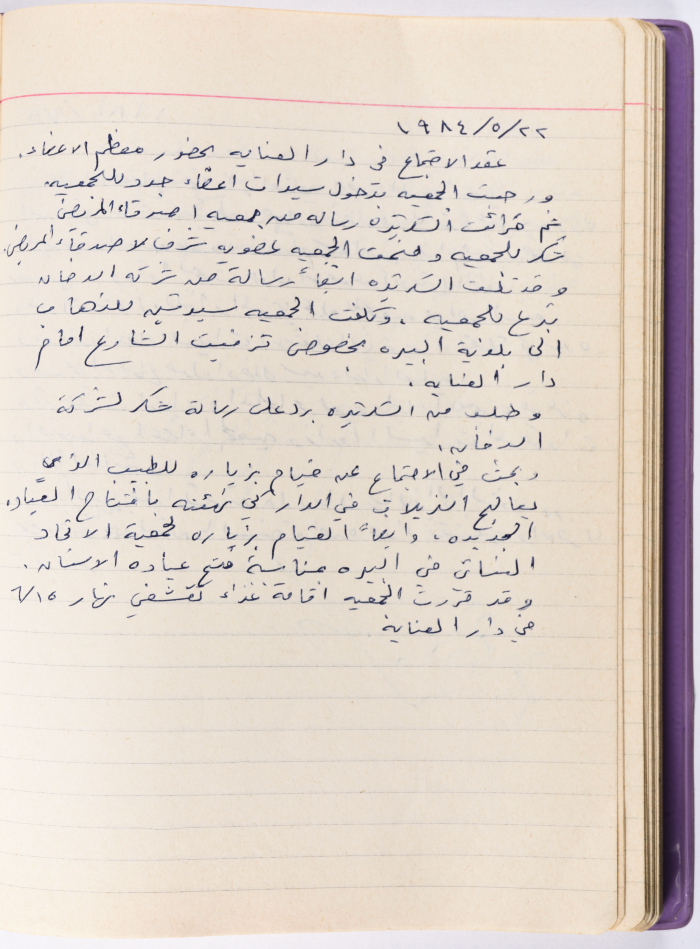 ١٩٨٤/٥/٢٢
عقد الاجتماع في دار العنايه بحضور معظم الاعضاء.
ورحبت الجمعيه بدخول سيدات اعضاء جدد للجمعيه.
ثم قرأت السكرتيره رساله من جمعيه اصدقاء المريض
شكر للجمعيه ومنحت الجمعيه عضوية شرف لاصدقاء المريض.
وقد تلت السكرتيره ايضاً رسالة من شركه الدخان
تبرع للجمعيه. وكلفت الجمعيه سيدتين للذهاب
الى بلدية البيره بخصوص تزفيت الشارع امام
دار العنايه.
وطلب من السكرتيره رد على رسالة شكر لشركة
الدخان.
وبحث في الاجتماع عن قيام بزياره للطبيب الذي
يعالج النزيلات في الدار كي نهنئه بافتتاح العياده
الجديده، وايضاً القيام بزياره لجمعية الاتحاد
النسائي في البيره بمناسبة فتح عياده الاسنان.
وقد قررت الجمعيه اقامة غذاء تقشفي نهار ٦/١٥
في دار العناية